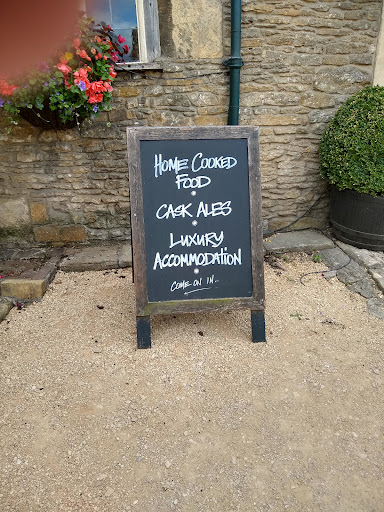 HOME COOKED
FOOD
CASK ALES
LUXURY
ACCOMMODATION
COME ON IN..